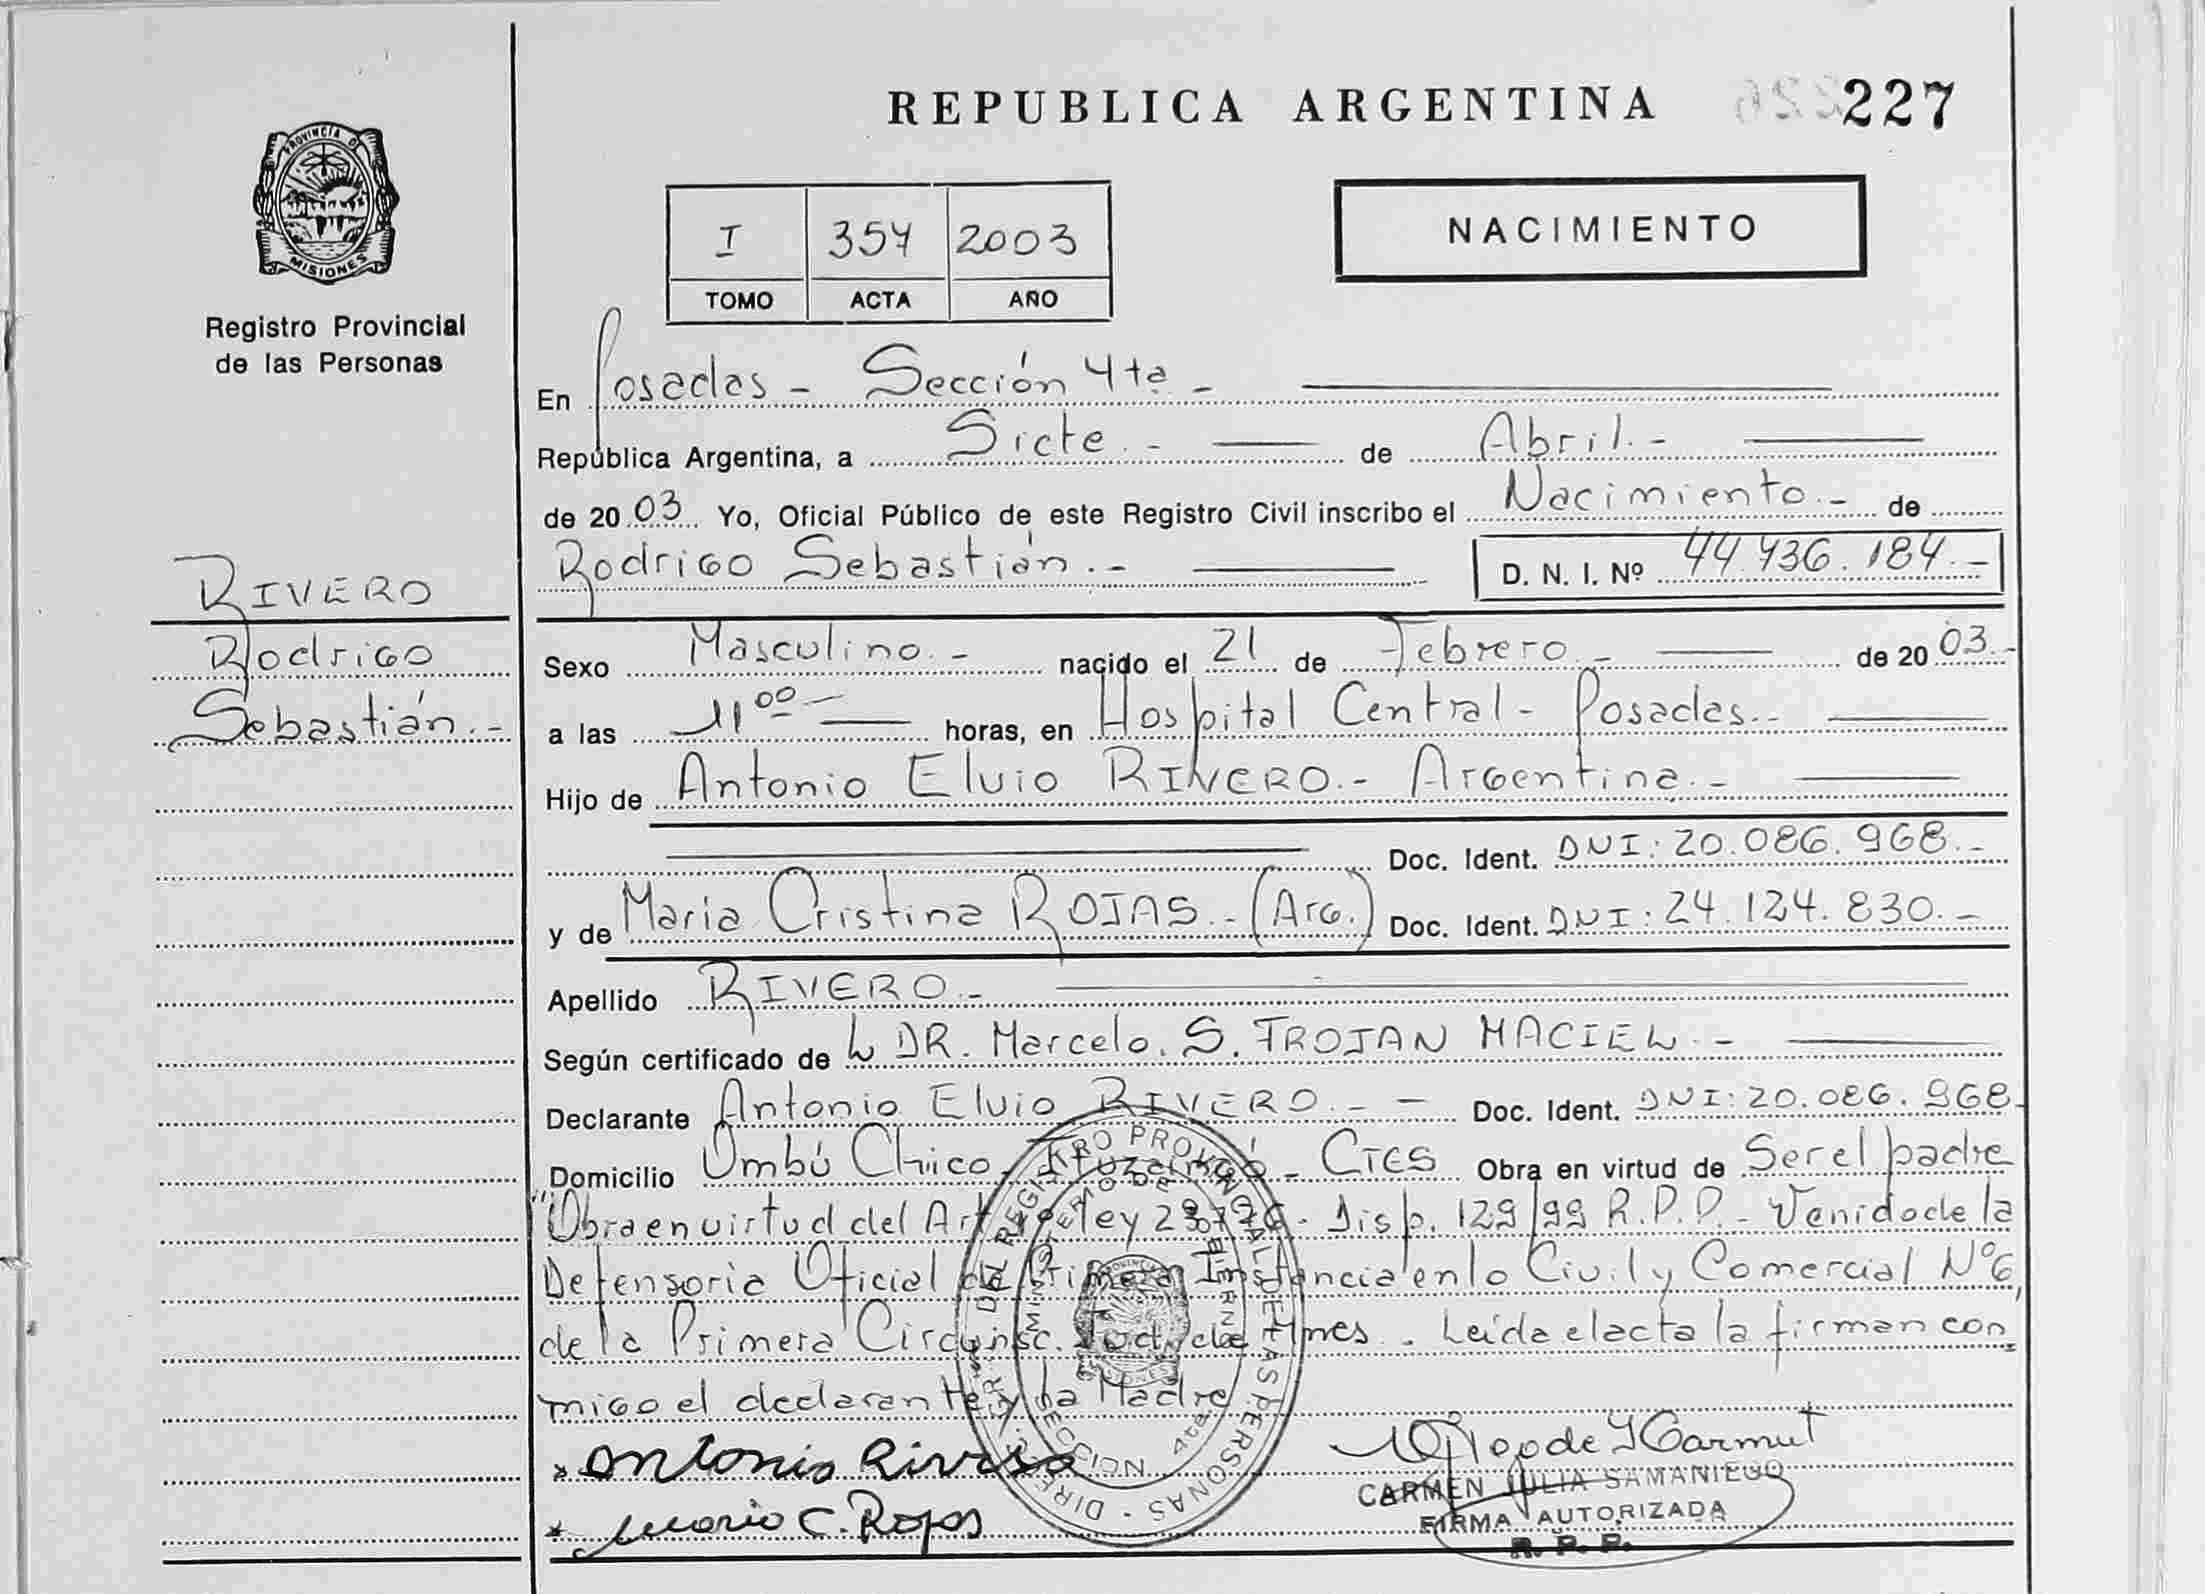 REPUBLICA ARGENTINA
227
PROVINCIA DE
MISIONES
Registro Provincial
de las Personas
I 354 2003
TOMO ACTA AÑO
NACIMIENTO
En Posadas - Sección 4ta -
República Argentina, a Siete.- de Abril.-
de 2003 Yo, Oficial Público de este Registro Civil inscribo el Nacimiento.- de
Rodrigo Sebastián.- D. N. I. Nº 44.436.184.-
RIVERO
Rodrigo
Sebastián.-
Sexo Masculino.- nacido el 21 de Febrero.- de 2003.-
a las 11 00 horas, en Hospital Central - Posadas.-
Hijo de Antonio Elvio RIVERO.- Argentina.-
Doc. Ident. DNI: 20.086.968.-
y de Maria Cristina ROJAS.- (Arg.) Doc. Ident. DNI: 24.124.830.-
Apellido RIVERO.-
Según certificado de DR. Marcelo. S. TROJAN MACIEL.-
Declarante Antonio Elvio RIVERO.- - Doc. Ident. DNI: 20.086.968.
Domicilio Ombú Chico, - Ctes Obra en virtud de Ser el padre
"Obra en virtud del Art Ley - Disp. 129/99 R.P.P.- Venido de la
Defensoria Oficial de Primera Instancia en lo Civil y Comercial Nº6,
de la Primera Circunsc. Jud. de Mnes. Leída el acta la firman con
migo el declarante y la Madre
Antonio Rivero
Maria C. Rojas
CARMEN JULIA SAMANIEGO
FIRMA AUTORIZADA
R. P. P.
DIR. DEL REGISTRO PROVINCIAL DE LAS PERSONAS
MINISTERIO DE GOBIERNO
SECCION 4ta